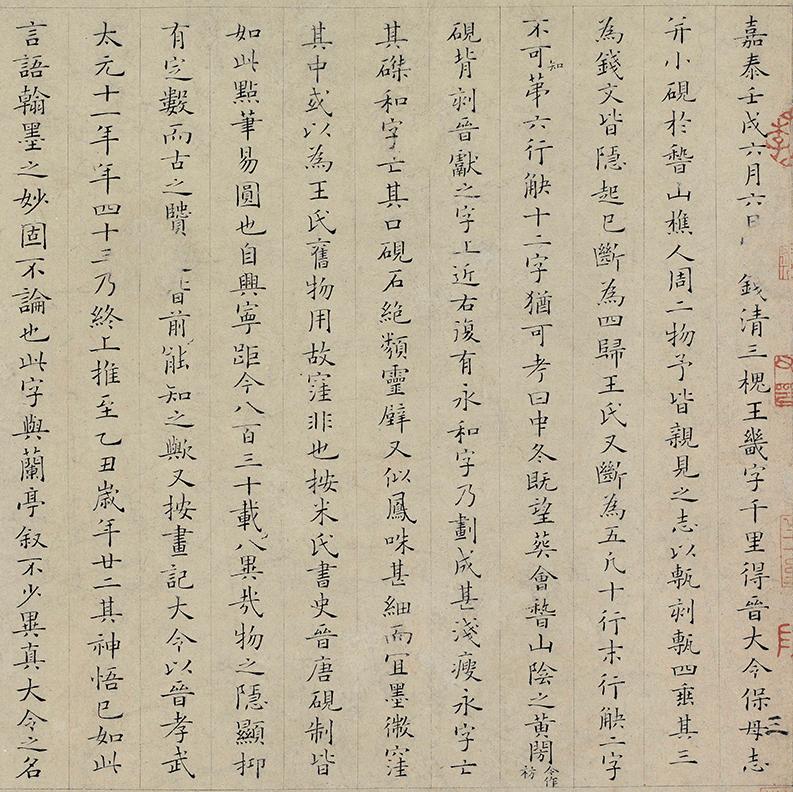 嘉泰壬戌六月六日錢清三槐王畿字千里得晉大令保母志
三
并小硯於稽山樵人周二物予皆親見之志以甎刻甎四垂其三
為錢文皆隱起已斷為四歸王氏又斷為五凡十行末行缺二字
不可知第六行缺十二字猶可考曰中冬既望葬會稽山陰之黃閍今作祊
硯背刻晉獻之字上近右復有永和字乃劃成甚淺瘦永字亡
其磔和字亡其口硯石絕類靈壁又似鳳咮甚細而宜墨微窪
其中或以為王氏舊物用故窪非也按米氏書史晉唐硯制皆
如此點筆易圓也自興寧距今八百三十載八異哉物之隱顯抑
有定數而古之賢皆前能知之歟又按畫記大令以晉孝武
太元十一年年四十三乃終上推至乙丑歲年廿二其神悟已如此
言語翰墨之妙固不論也此字與蘭亭叙不少異真大令之名